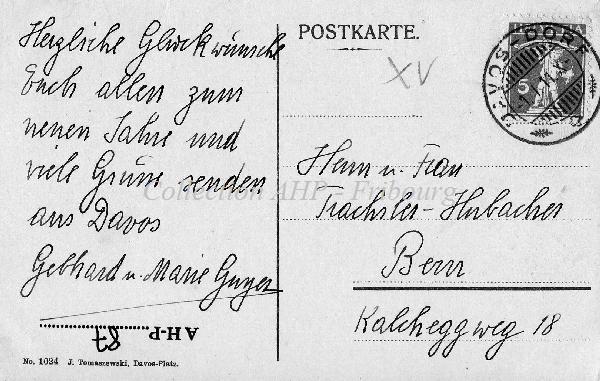 POSTKARTE.
HELVETIA
5
DAVOS-DORF
XV
Herzliche Glückwünsche
Euch allen zum
neuen Jahre und
viele Grüsse senden
aus Davos
Gebhard u. Marie Guyer
Herrn u. Frau
Trachsler-Hubacher
Bern
Kalcheggweg 18
AH-P
87
No. 1034 J. Tomaszewski, Davos-Platz.
Collection AHP - Fribourg